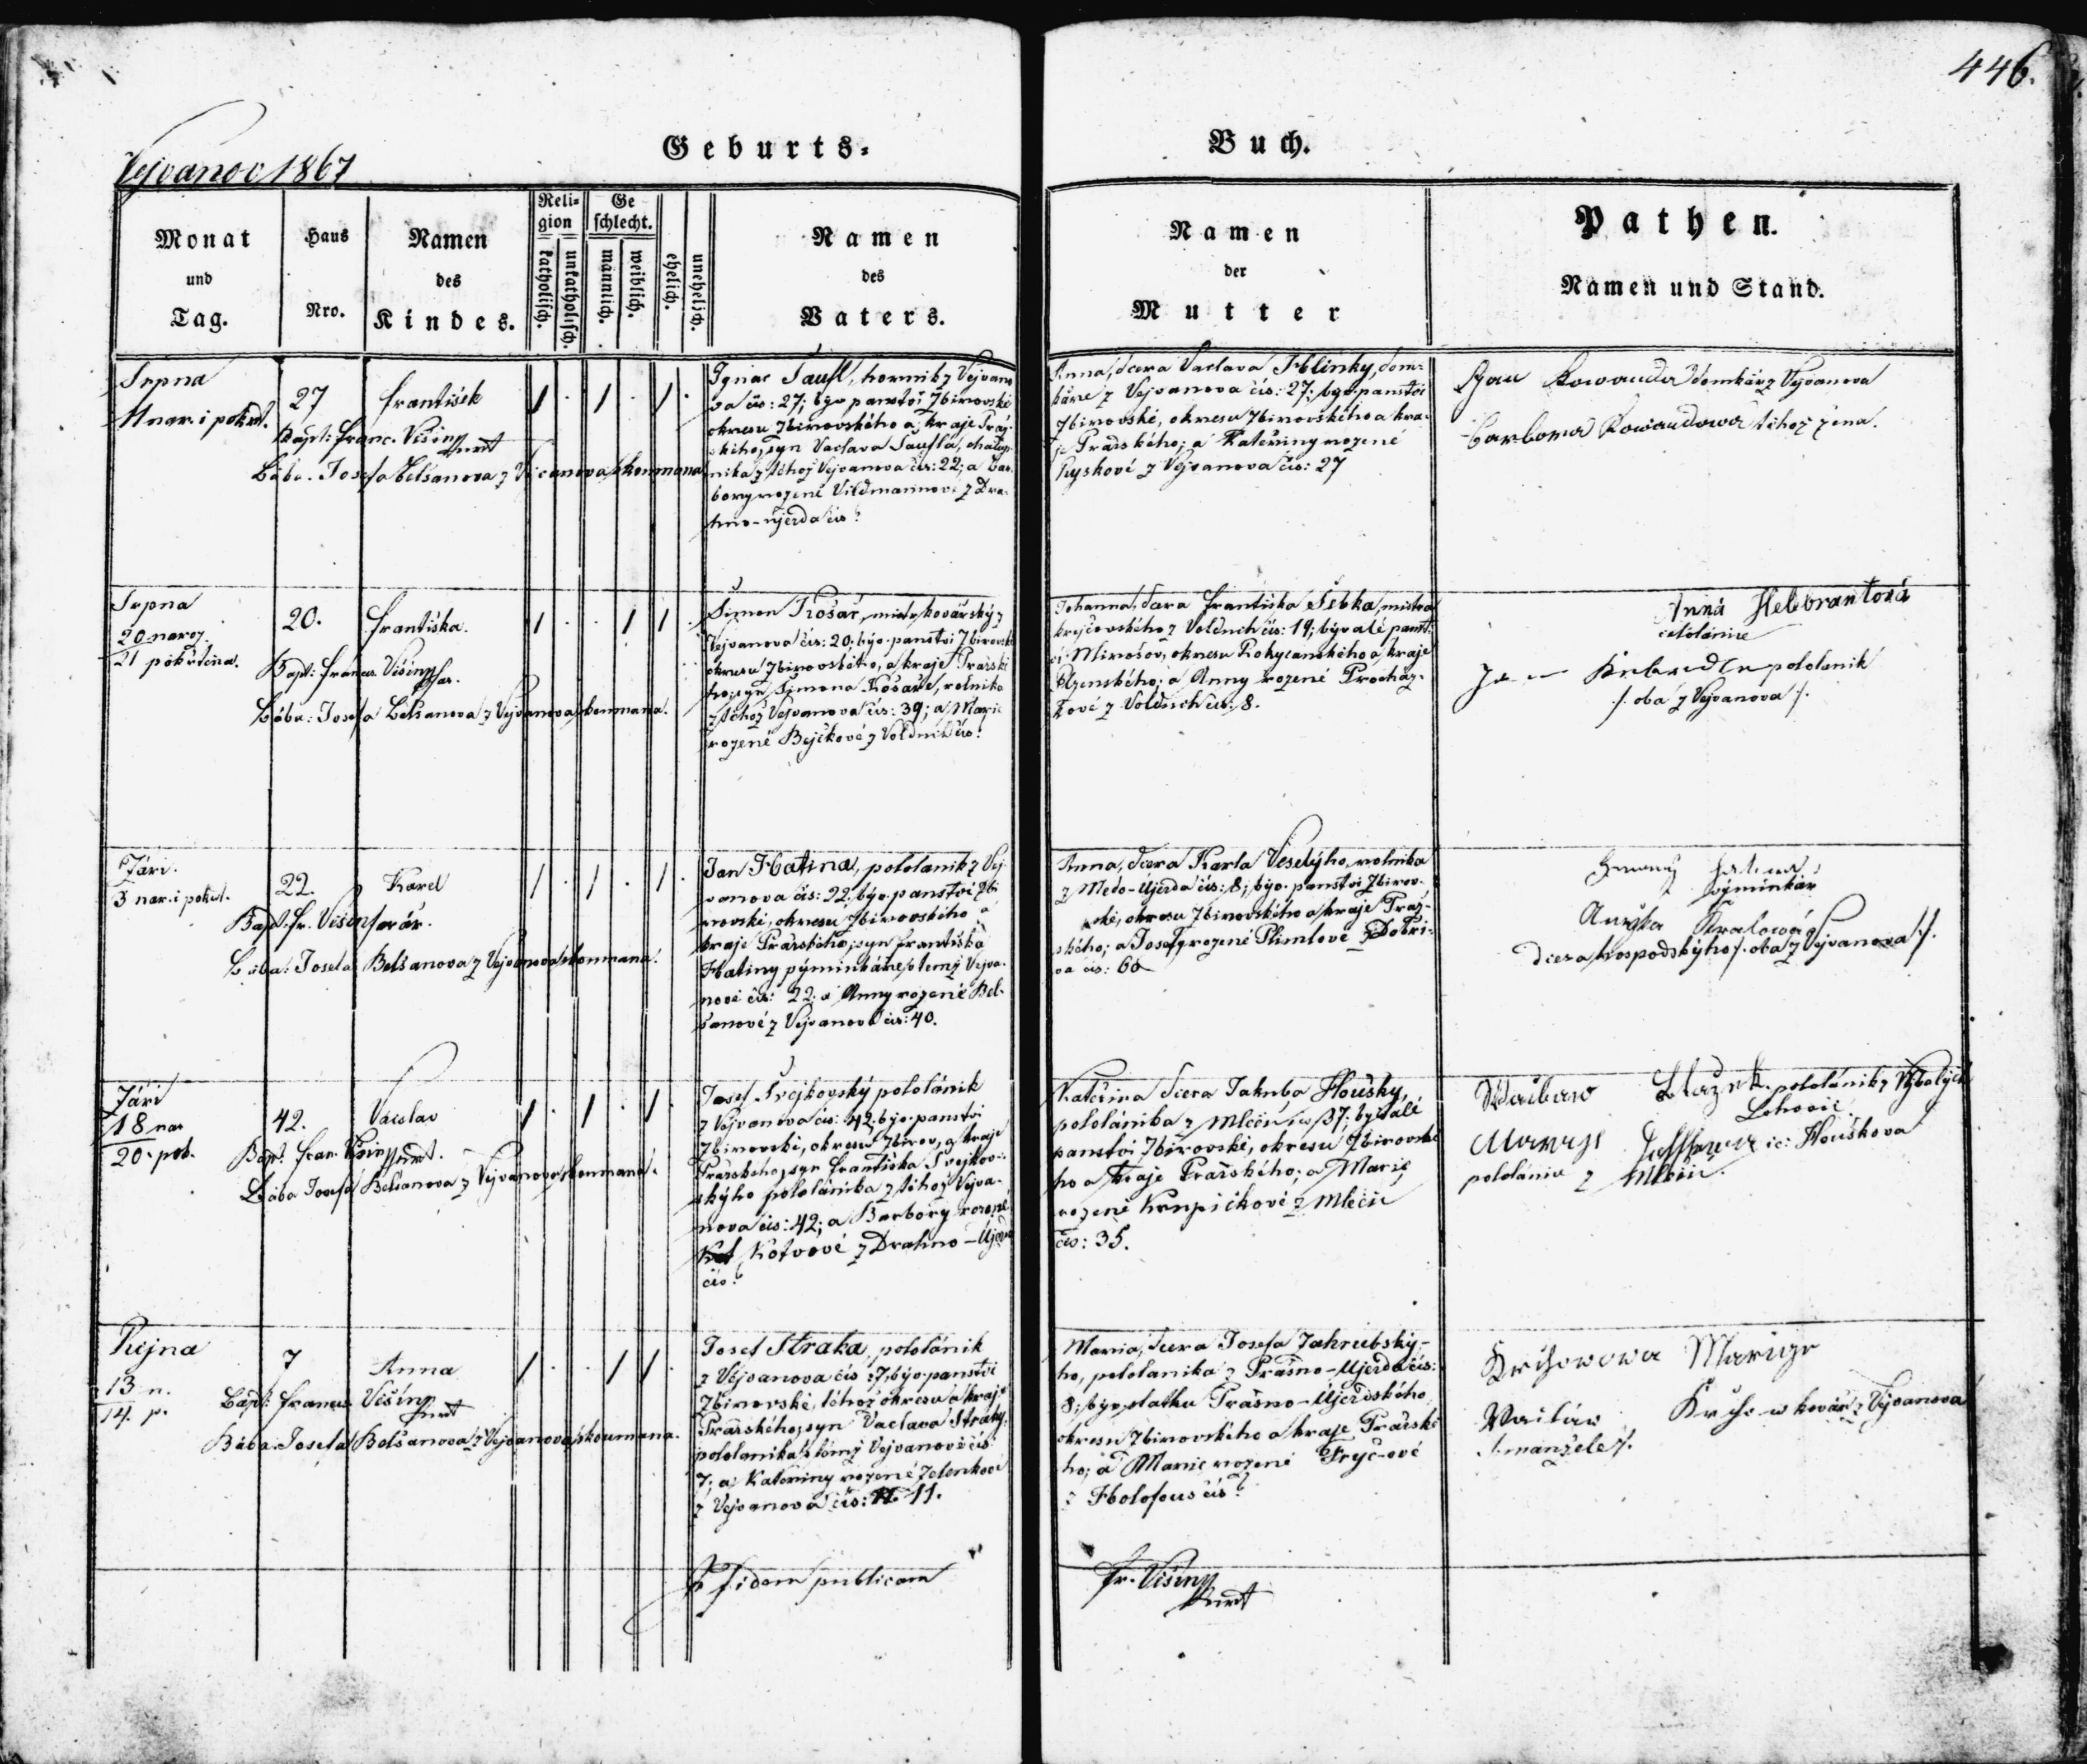 446.
Vejvanov 1867
Geburts=
Buch.
Monat
und
Tag.
Haus
Nro.
Namen
des
Kindes.
Reli=
gion
katholisch.
unkatholisch.
Ge
schlecht.
männlich.
weiblich.
ehelich.
unehelich.
Namen
des
Vaters.
Namen
der
Mutter
Pathen.
Namen und Stand.
Srpna
nar. i pokřt.
27
František
Bapt: Franc. Višiny
Bába: Josefa Belšanova z Vejvanova zkoumana
Ignac Taufl, horník z Vejvano
va čis: 27; býv. panství Zbirovské
okresu Zbirovského a kraje Praž-
ského, syn Vaclava Taufla,
z téhož Vejvanova čis: 22; a Bar-
bory rozené Vildmannové z Dra-
hno-újezda čís?
Anna, dcera Vaclava Hlinky, dom-
káře z Vejvanova čís: 27; býv. panství
Zbirovské, okresu Zbirovského a kra-
je Pražského; a Kateřiny rozené
z Vejvanova čis: 27
Jan Kowanda domkář z Vejvanova
Barbora Kowandowa téhož žena.
Srpna
20 naroz.
21 pokřtěna.
20.
Františka.
Bapt: Franc. Višiny far.
Bába: Josefa Belšanova z Vejvanova zkoumana.
Šimon Košař, mistr kovářský z
Vejvanova čis: 20; býv. panství Zbirovské
okresu Zbirovského, a kraje Pražské
ho; syn Šimona Košaře, rolníka
z téhož Vejvanova čis: 39; a Marie
rozené Bejčkové z Volduch čis?
Johanna, dcera Františka Šebka, mistra
krejčovského z Volduch čis: 19; bývalé panst-
ví Mirošov, okresu Rokycanského a kraje
Plzenského; a Anny rozené Procház-
kové z Volduch čis: 8.
Anna Hebbrantová
celolánice
pololanik
/. oba z Vejvanova /.
Září.
3 nar. i pokřt.
22.
Karel
Bapt: Fr. Višiny farář.
Bába: Josefa Belšanova z Vejvanova zkoumaná.
Jan Hatina, pololanik z Vej
vanova čis: 22, býv. panství Zbi
rovské, okresu Zbirovského a
kraje Pražského; syn Františka
Hatiny výminkáře v témž Vejva-
nově čis: 22; a Anny rozené Bel-
šanové z Vejvanova čis: 40.
Anna, dcera Karla Veselýho, rolníka
z Medo-Újezda čis: 8; býv. panství Zbirov-
ské, okresu Zbirovského a kraje Praž-
ského; a Josefy rozené Plimlové z Dobří-
va čis: 60
Hatina,
výminkář
Anežka Kralowá
dcera hospodského /. oba z Vejvanova /.
Září
18 nar
20. pok.
42.
Vaclav
Bapt: Fran. Višiny
Bába Josefa Belšanova z Vejvanova zkoumaná.
Josef Svejkovský pololánik
z Vejvanova čis: 42. býv. panství
Zbirovské, okresu Zbirov, a kraje
Pražskeho, syn Františka Svejkov-
skýho pololánika z téhož Vejva-
nova čis: 42; a Barbory rozené
Kotvové z Drahno-Újezda
čis?
Kateřina dcera Jakuba Houšky,
pololánika z Mlečic čis 37; bývalé
panství Zbirovské, okresu Zbirovské
ho a kraje Pražského; a Marie,
rozené Krupičkové z Mlečic
čis: 35.
Václaw Blažek pololánik z Vybalých
Lohovic.
Maryje Houškova
pololánice z Mlečic.
Října
13 n.
14. p.
7
Anna
Bapt: Franc. Višiny
Bába: Josefa Belšanova z Vejvanova zkoumana.
Josef Straka, pololánik
z Vejvanova čis: 7; býv. panství
Zbirovské, téhož okresu a kraje
Pražského, syn Vaclava Straky,
pololanika v témž Vejvanově čis:
7; a Kateřiny rozené Zelenkové
z Vejvanova čis: 11.
Maria, dcera Josefa Zahrubský-
ho, pololanika z Prašno-Újezda čis:
8; býv. statku Prašno-Újezdského
okresu Zbirovského a kraje Pražské
ho; a Marie rozené Fryč-ové
z Holofous čis?
Marige
Václaw kovář z Vejvanova
/. manželé /.
P fidem publicam
Fr. Višiny